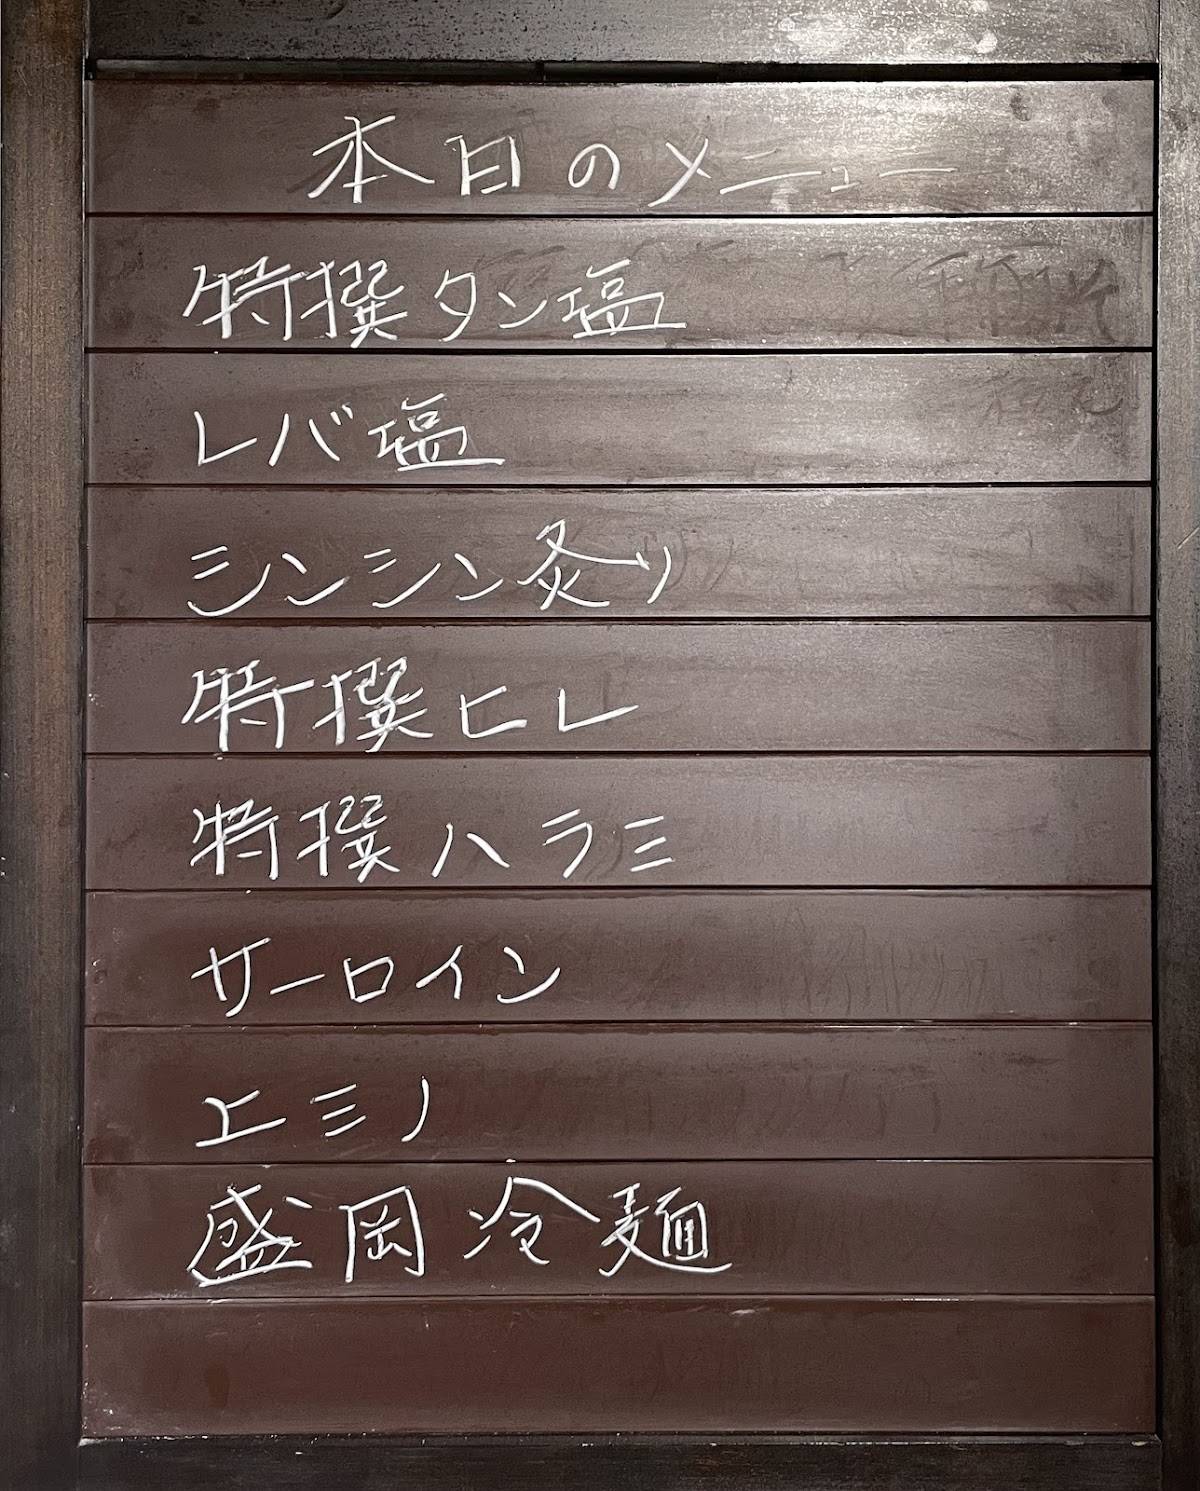 本日のメニュー
特撰タン塩
レバ塩
シンシン炙り
特撰ヒレ
特撰ハラミ
サーロイン
エミノ
盛岡冷麺